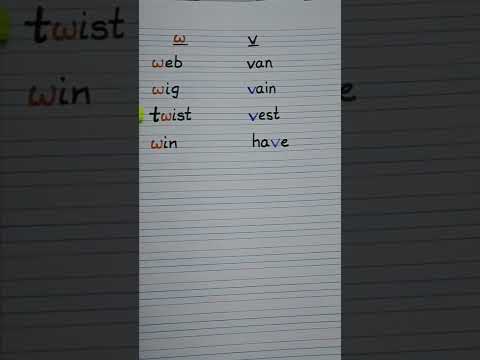 w v
web van
wig vain
twist vest
win have